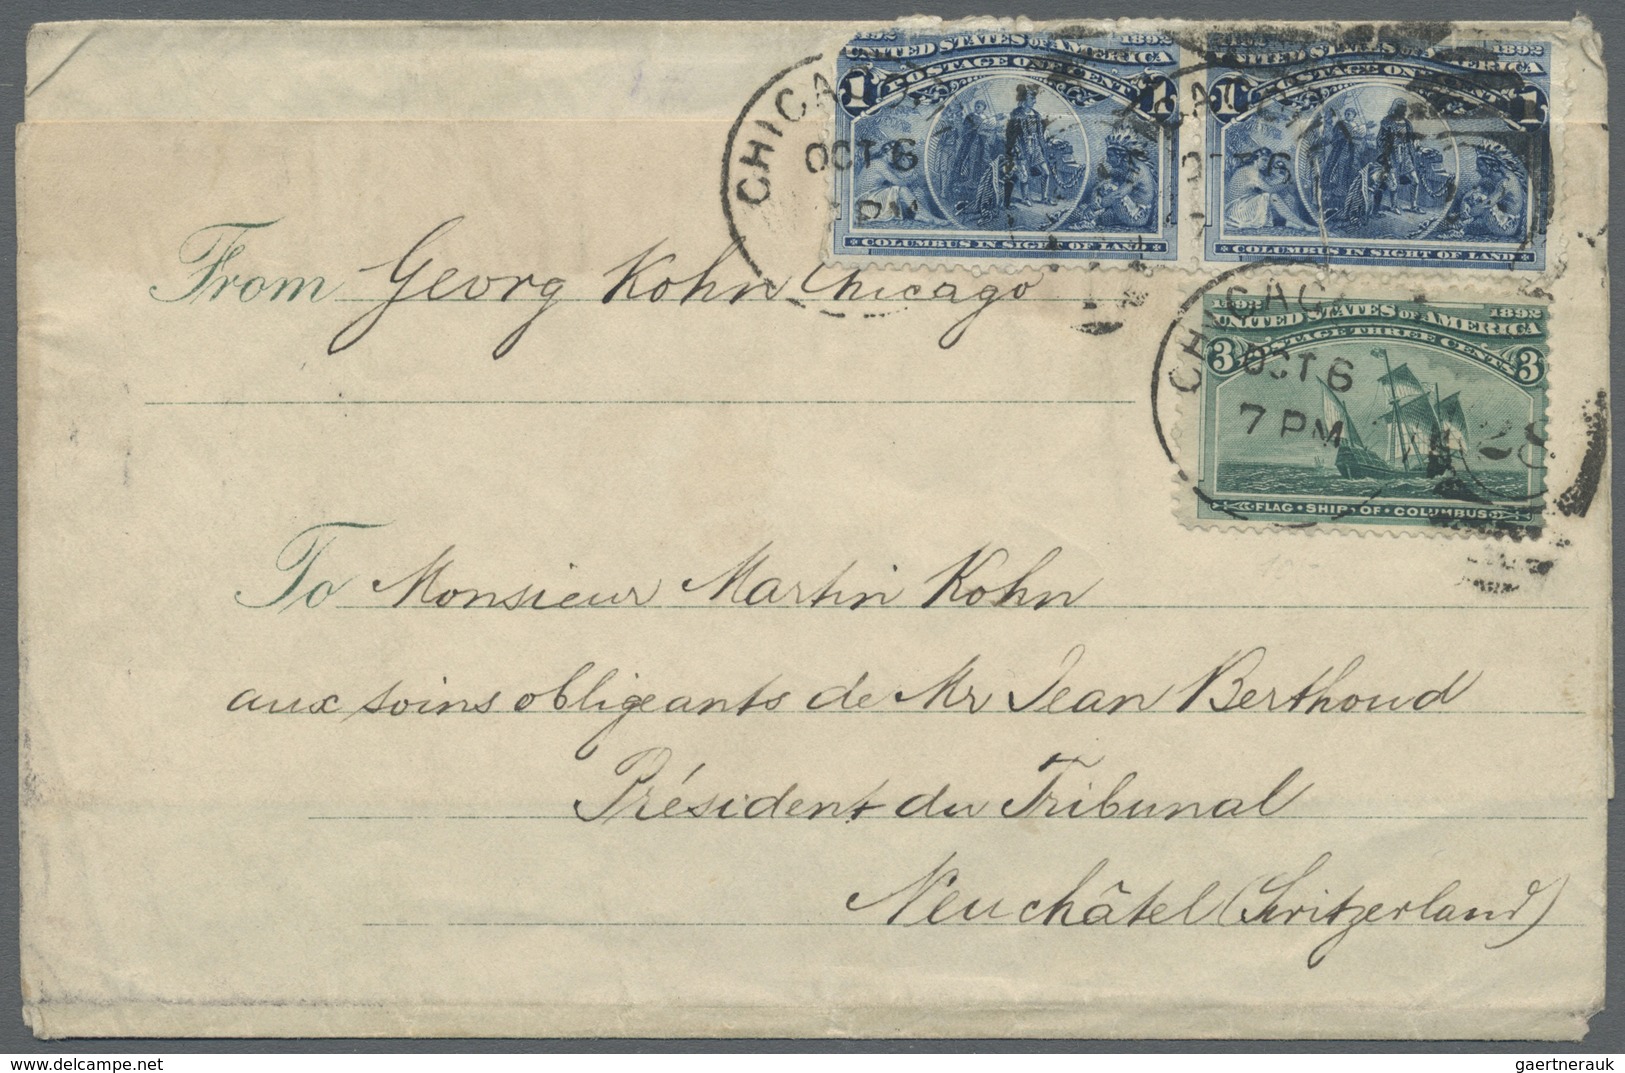 1892 1892 1892
UNITED STATES OF AMERICA UNITED STATES OF AMERICA
1 POSTAGE ONE CENT 1 1 POSTAGE ONE CENT 1
COLUMBUS IN SIGHT OF LAND COLUMBUS IN SIGHT OF LAND
CHICAGO
OCT 6
PM
From Georg Kohn Chicago
1892 1892
UNITED STATES OF AMERICA
3 POSTAGE THREE CENTS 3
FLAG · SHIP · OF · COLUMBUS
CHICAGO
OCT 6
7 PM
28
To Monsieur Martin Kohn
aux soins obligeants de Mr Jean Berthoud
Président du Tribunal
Neuchâtel (Switzerland)
www.delcampe.net
gaertnerauk